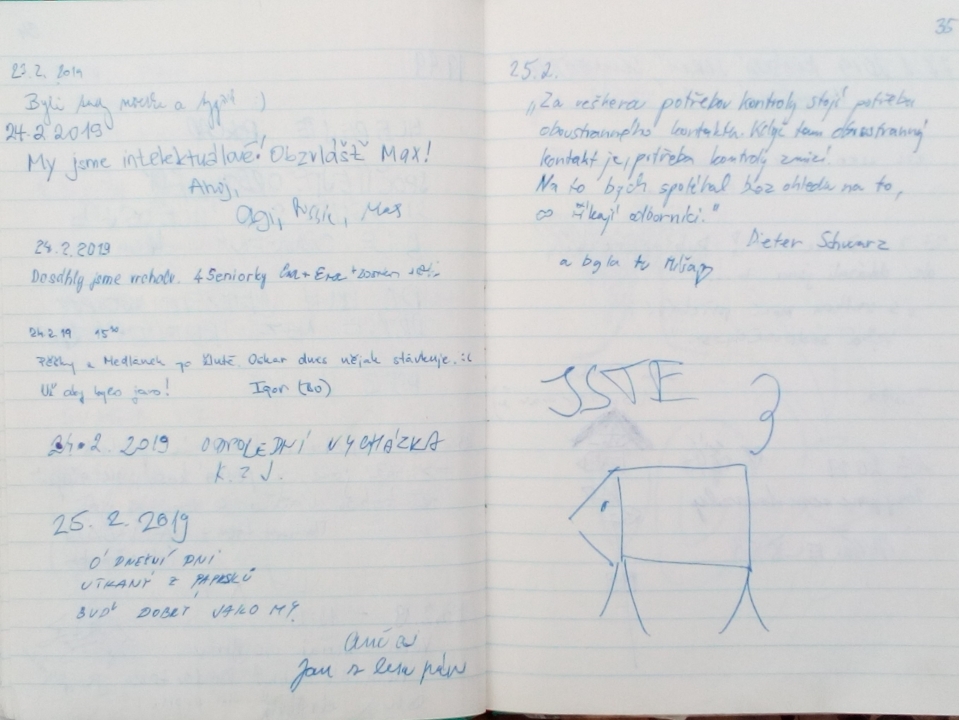 23.2. 2019
Byli tady
24.2 2019
My jsme intelektuálové! Obzvlášť Max!
Ahoj,
Max
24.2.2019
Dosáhly jsme vrcholu. 4 Seniorky
24.2.19 15³⁰
Pěšky z Medlánek po žluté. Oskar dnes nějak stávkuje. :(
Už aby bylo jaro! Igor (80)
24.2. 2019 ODPOLEDNÍ VYCHÁZKA
K. Z J.
25. 2. 2019
Ó DNEŠNÍ DNI
UTKANÝ Z PAPRSKŮ
BUĎ DOBRÝ JAKO MY.
Jan z lesa
35
25.2.
„Za veškerou potřebou kontroly stojí potřeba
oboustranného kontaktu. Když tam oboustranný
kontakt je, potřeba kontroly zmizí.
Na to bych spoléhal bez ohledu na to,
co říkají odborníci."
Dieter Schwarz
a byla tu
JSTE